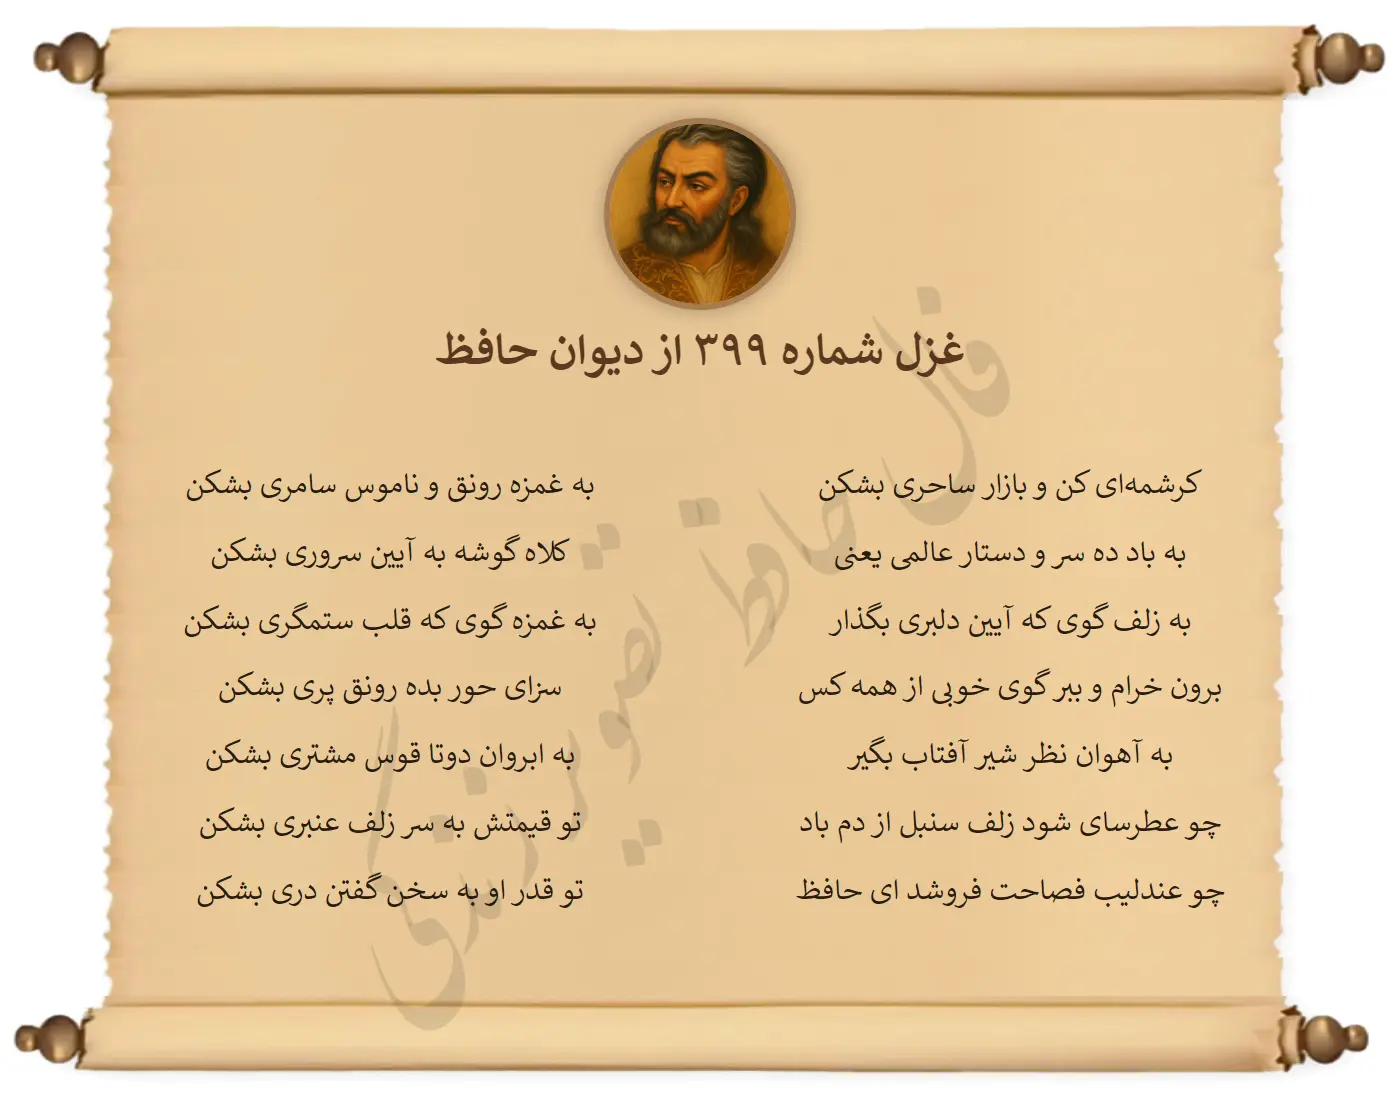 غزل شماره ۳۹۹ از دیوان حافظ
کرشمه‌ای کن و بازار ساحری بشکن
به غمزه رونق و ناموس سامری بشکن
به باد ده سر و دستار عالمی یعنی
کلاه گوشه به آیین سروری بشکن
به زلف گوی که آیین دلبری بگذار
به غمزه گوی که قلب ستمگری بشکن
برون خرام و ببر گوی خوبی از همه کس
سزای حور بده رونق پری بشکن
به آهوان نظر شیر آفتاب بگیر
به ابروان دوتا قوس مشتری بشکن
چو عطرسای شود زلف سنبل از دم باد
تو قیمتش به سر زلف عنبری بشکن
چو عندلیب فصاحت فروشد ای حافظ
تو قدر او به سخن گفتن دری بشکن
فال حافظ تصویر زندگی